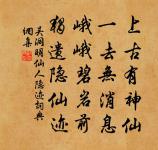 上古有神仙
一去無消息
峨峨碧岩前
猶遺隐仙迹
明仙人隐迹詞典
網集